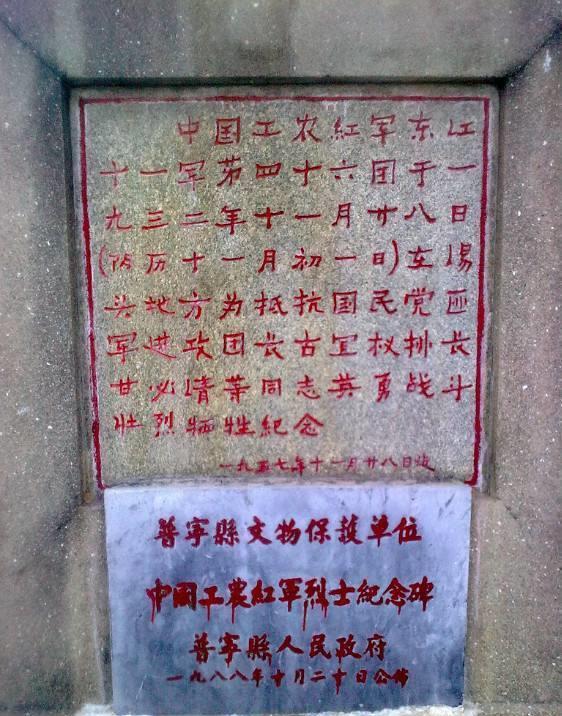 中国工农紅军东江
十一军第四十六囯于一
九三二年十一月廿八日
(阴历十一月初一日)在揚
头地方为抵抗国民党匪
军进攻团长古宜权排长
甘必靖葉同志英勇战斗
壮烈牺牲紀念
一九五七年十一月廿八日
普寧縣文物保護单位
中國工農紅軍烈士紀念碑
普寧縣人民政府
一九八八年十月二十日公佈